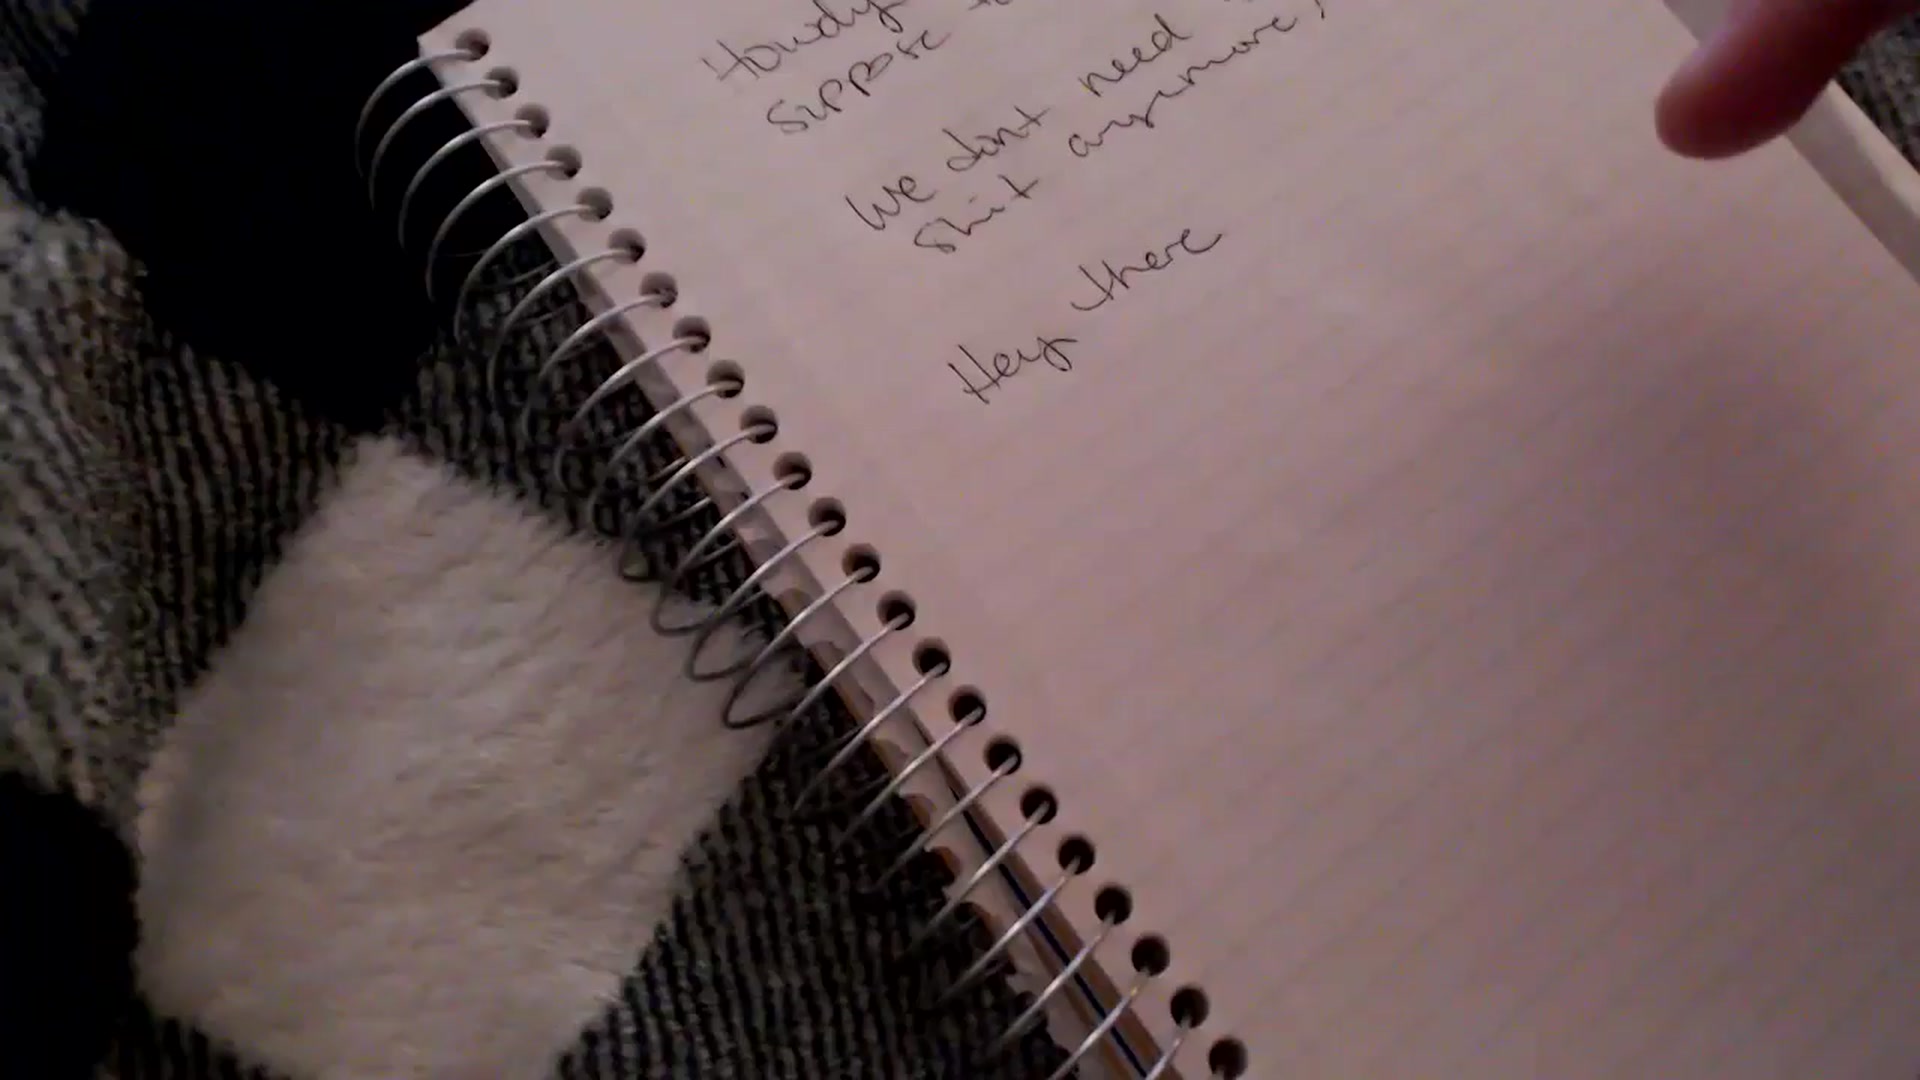 Howdy
suppose
We dont need
shit anymore!
Hey there